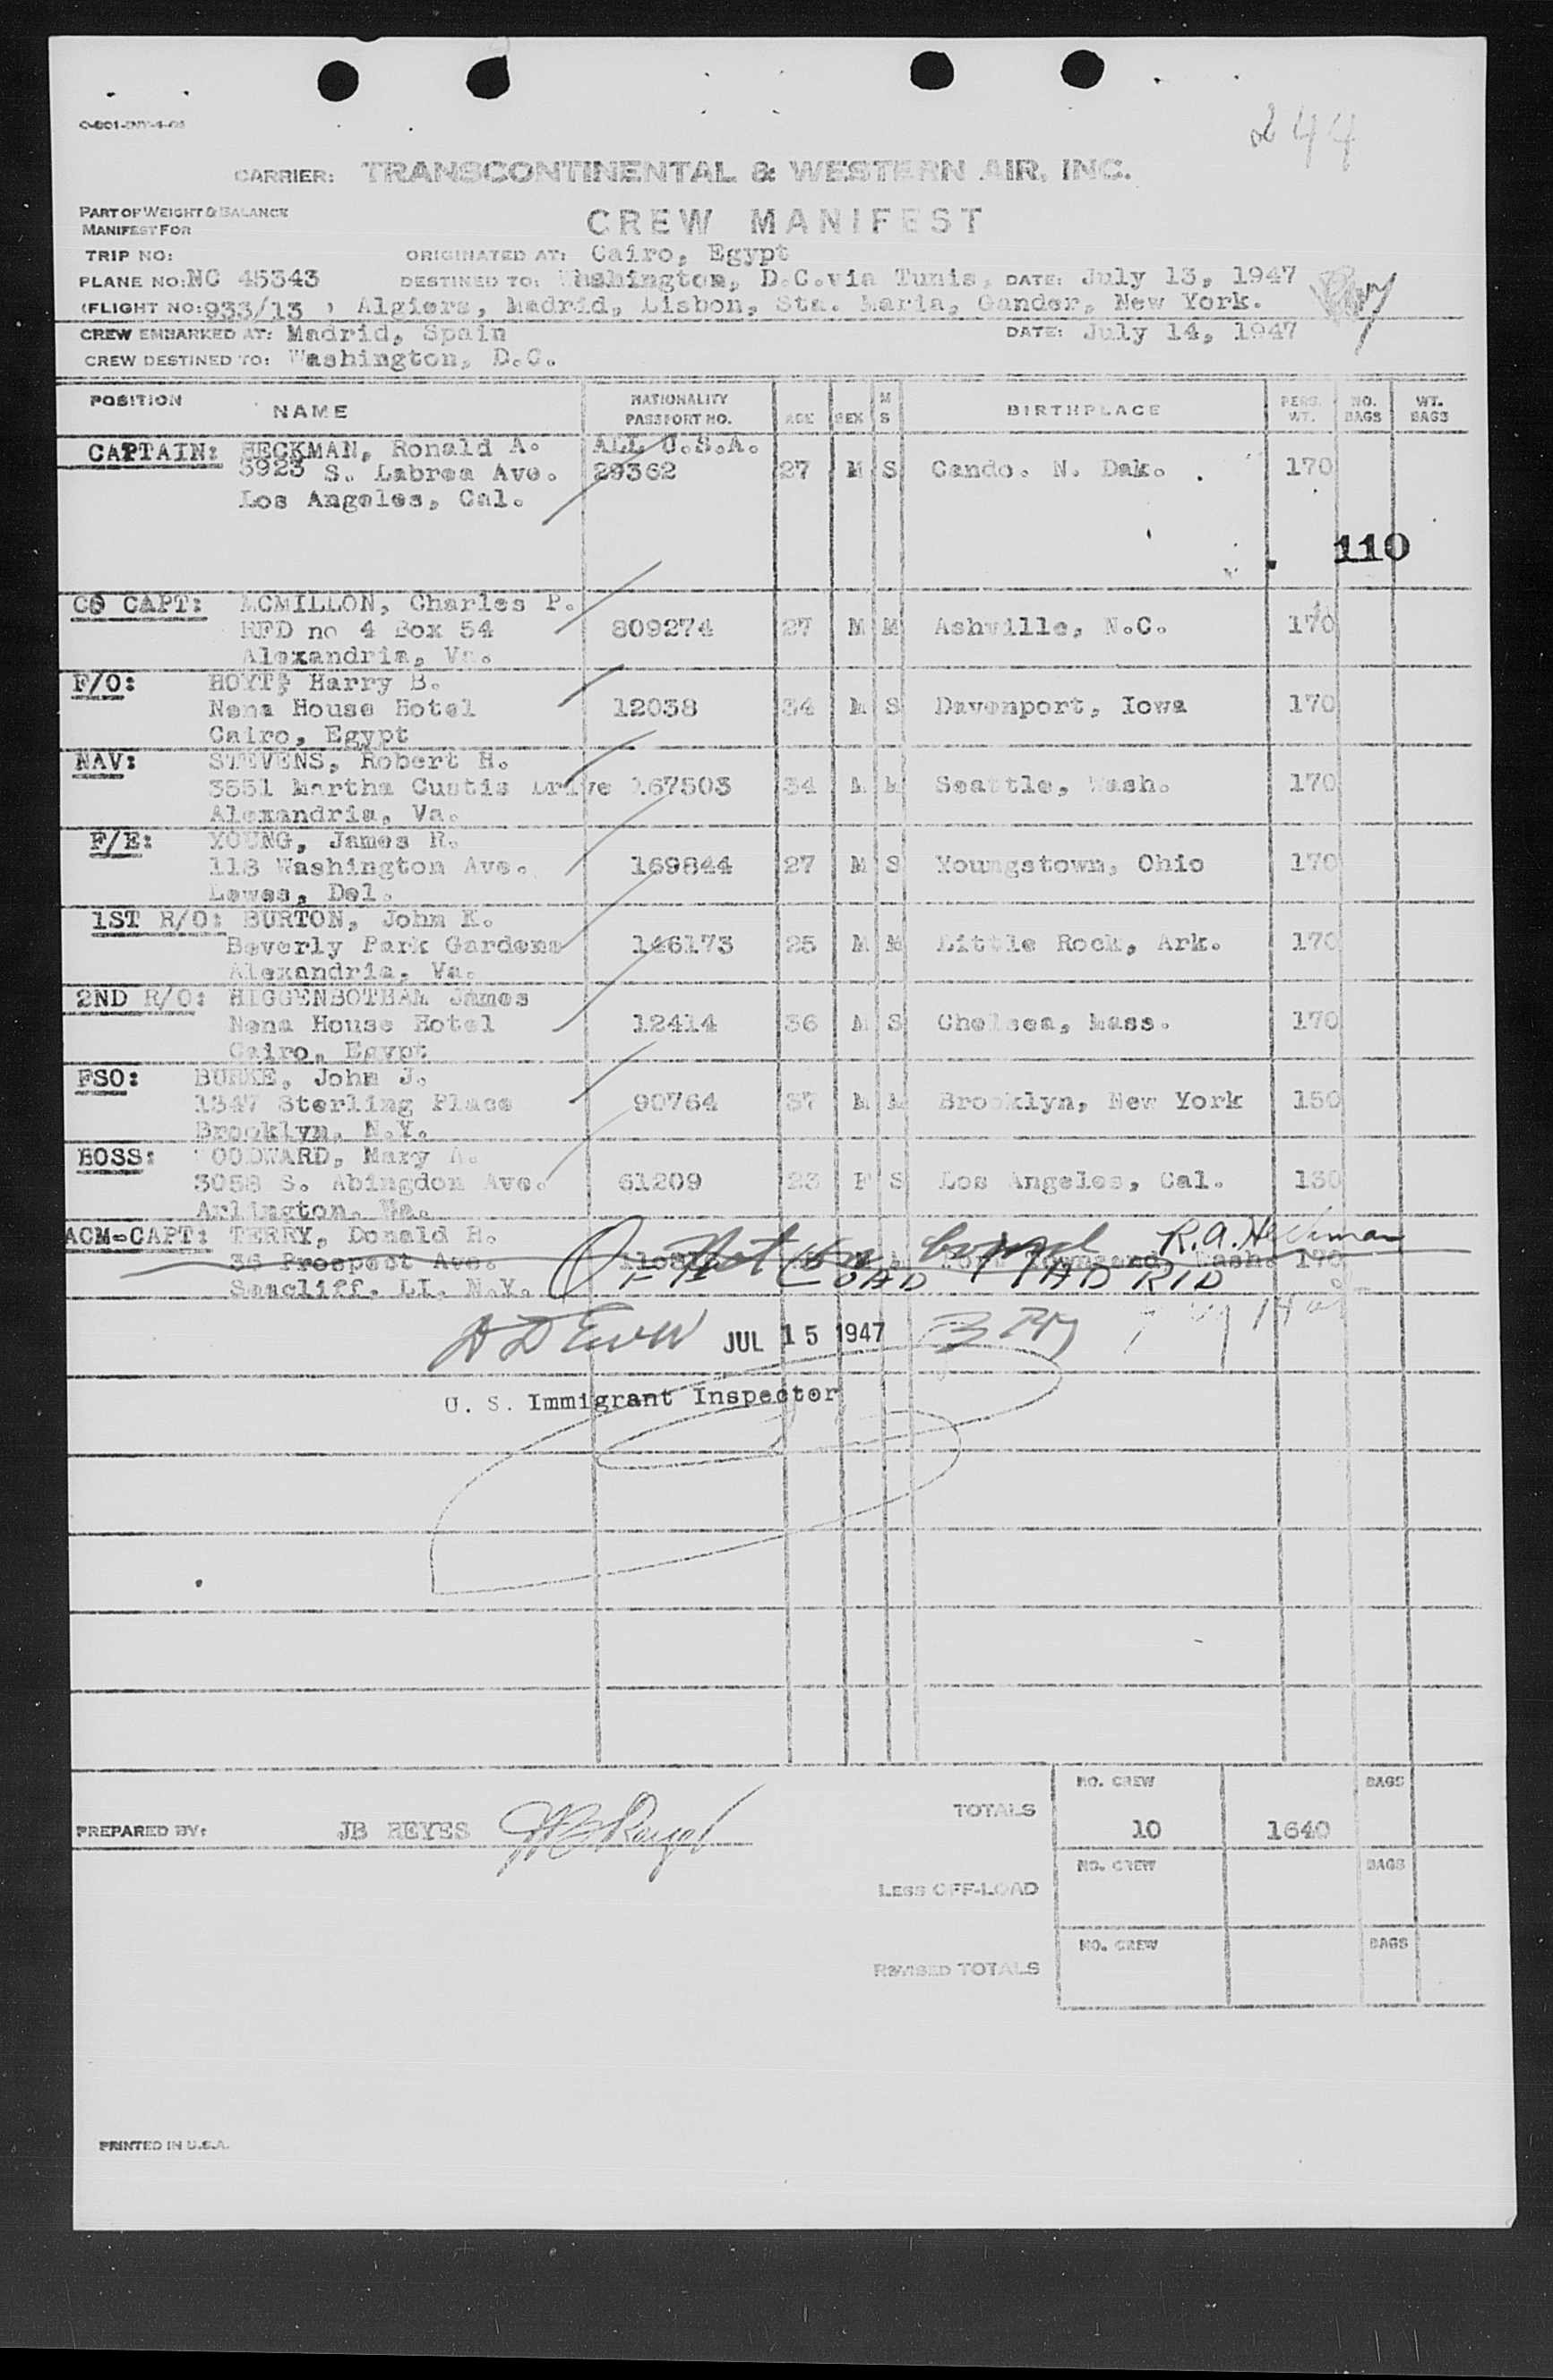 244
CARRIER: TRANSCONTINENTAL & WESTERN AIR, INC.
PART OF WEIGHT & BALANCE
MANIFEST FOR
CREW MANIFEST
TRIP NO: ORIGINATED AT: Cairo, Egypt
PLANE NO: NC 45343 DESTINED TO: Washington, D.C.via Tunis, DATE: July 13, 1947
(FLIGHT NO: 933/13 ) Algiers, Madrid, Lisbon, Sta. Maria, Gander, New York.
CREW EMBARKED AT: Madrid, Spain DATE: July 14, 1947
CREW DESTINED TO: Washington, D.C.
POSITION NAME NATIONALITY PASSPORT NO. AGE SEX M S BIRTHPLACE PERS. WT. NO. BAGS WT. BAGS
CAPTAIN: HECKMAN, Ronald A. ALL U.S.A.
5923 S. Labrea Ave. 29362 27 M S Cando. N. Dak. 170
Los Angeles, Cal.
110
CO CAPT: MCMILLON, Charles P.
RFD no 4 Box 54 809274 27 M M Ashville, N.C. 170
Alexandria, Va.
F/O: HOYT, Harry B.
Nena House Hotel 12038 34 M S Davenport, Iowa 170
Cairo, Egypt
NAV: STEVENS, Robert H.
3551 Martha Custis Drive 167503 34 M M Seattle, Wash. 170
Alexandria, Va.
F/E: YOUNG, James R.
118 Washington Ave. 169844 27 M S Youngstown, Ohio 170
Lewes, Del.
1ST R/O: BURTON, John K.
Beverly Park Gardens 146173 25 M M Little Rock, Ark. 170
Alexandria, Va.
2ND R/O: HIGGENBOTHAM James
Nena House Hotel 12414 36 M S Chelsea, Mass. 170
Cairo, Egypt
FSO: BURKE, John J.
1347 Sterling Place 90764 37 M M Brooklyn, New York 150
Brooklyn, N.Y.
BOSS: WOODWARD, Mary A.
3058 S. Abingdon Ave. 61209 23 F S Los Angeles, Cal. 130
Arlington, Va.
ACM-CAPT: TERRY, Donald H. Not on board R.A. Heckman
36 Prospect Ave. Port Townsend, Wash. 170
Seacliff, LI, N.Y. OFF LOAD MADRID
JUL 15 1947
U. S. Immigrant Inspector
TOTALS NO. CREW 10 1640 BAGS
PREPARED BY: JB REYES
LESS OFF-LOAD NO. CREW BAGS
REVISED TOTALS NO. CREW BAGS
PRINTED IN U.S.A.